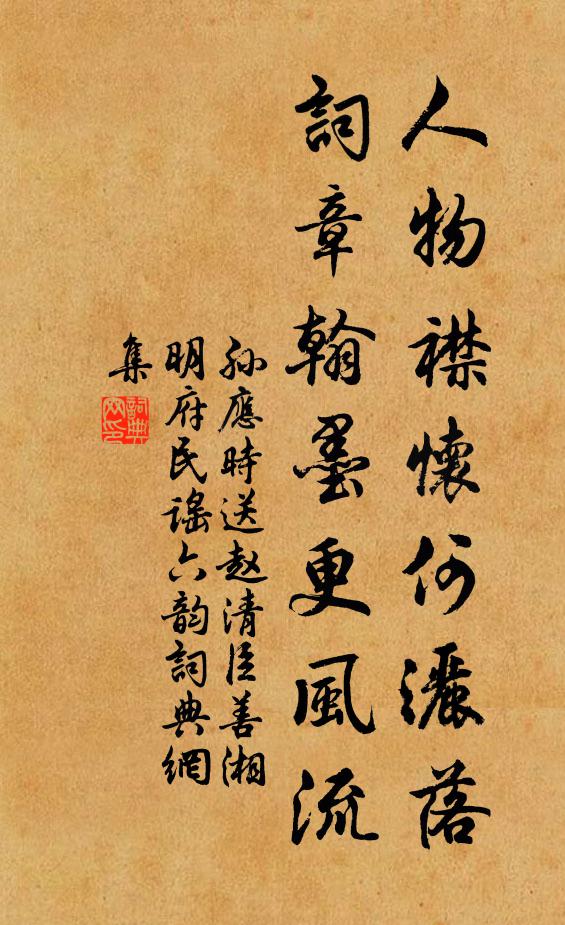 人物襟懷何灑落
詞章翰墨更風流
孫應時送赵清臣善湘
明府民謠六韵詞典網
集
詞典
网印